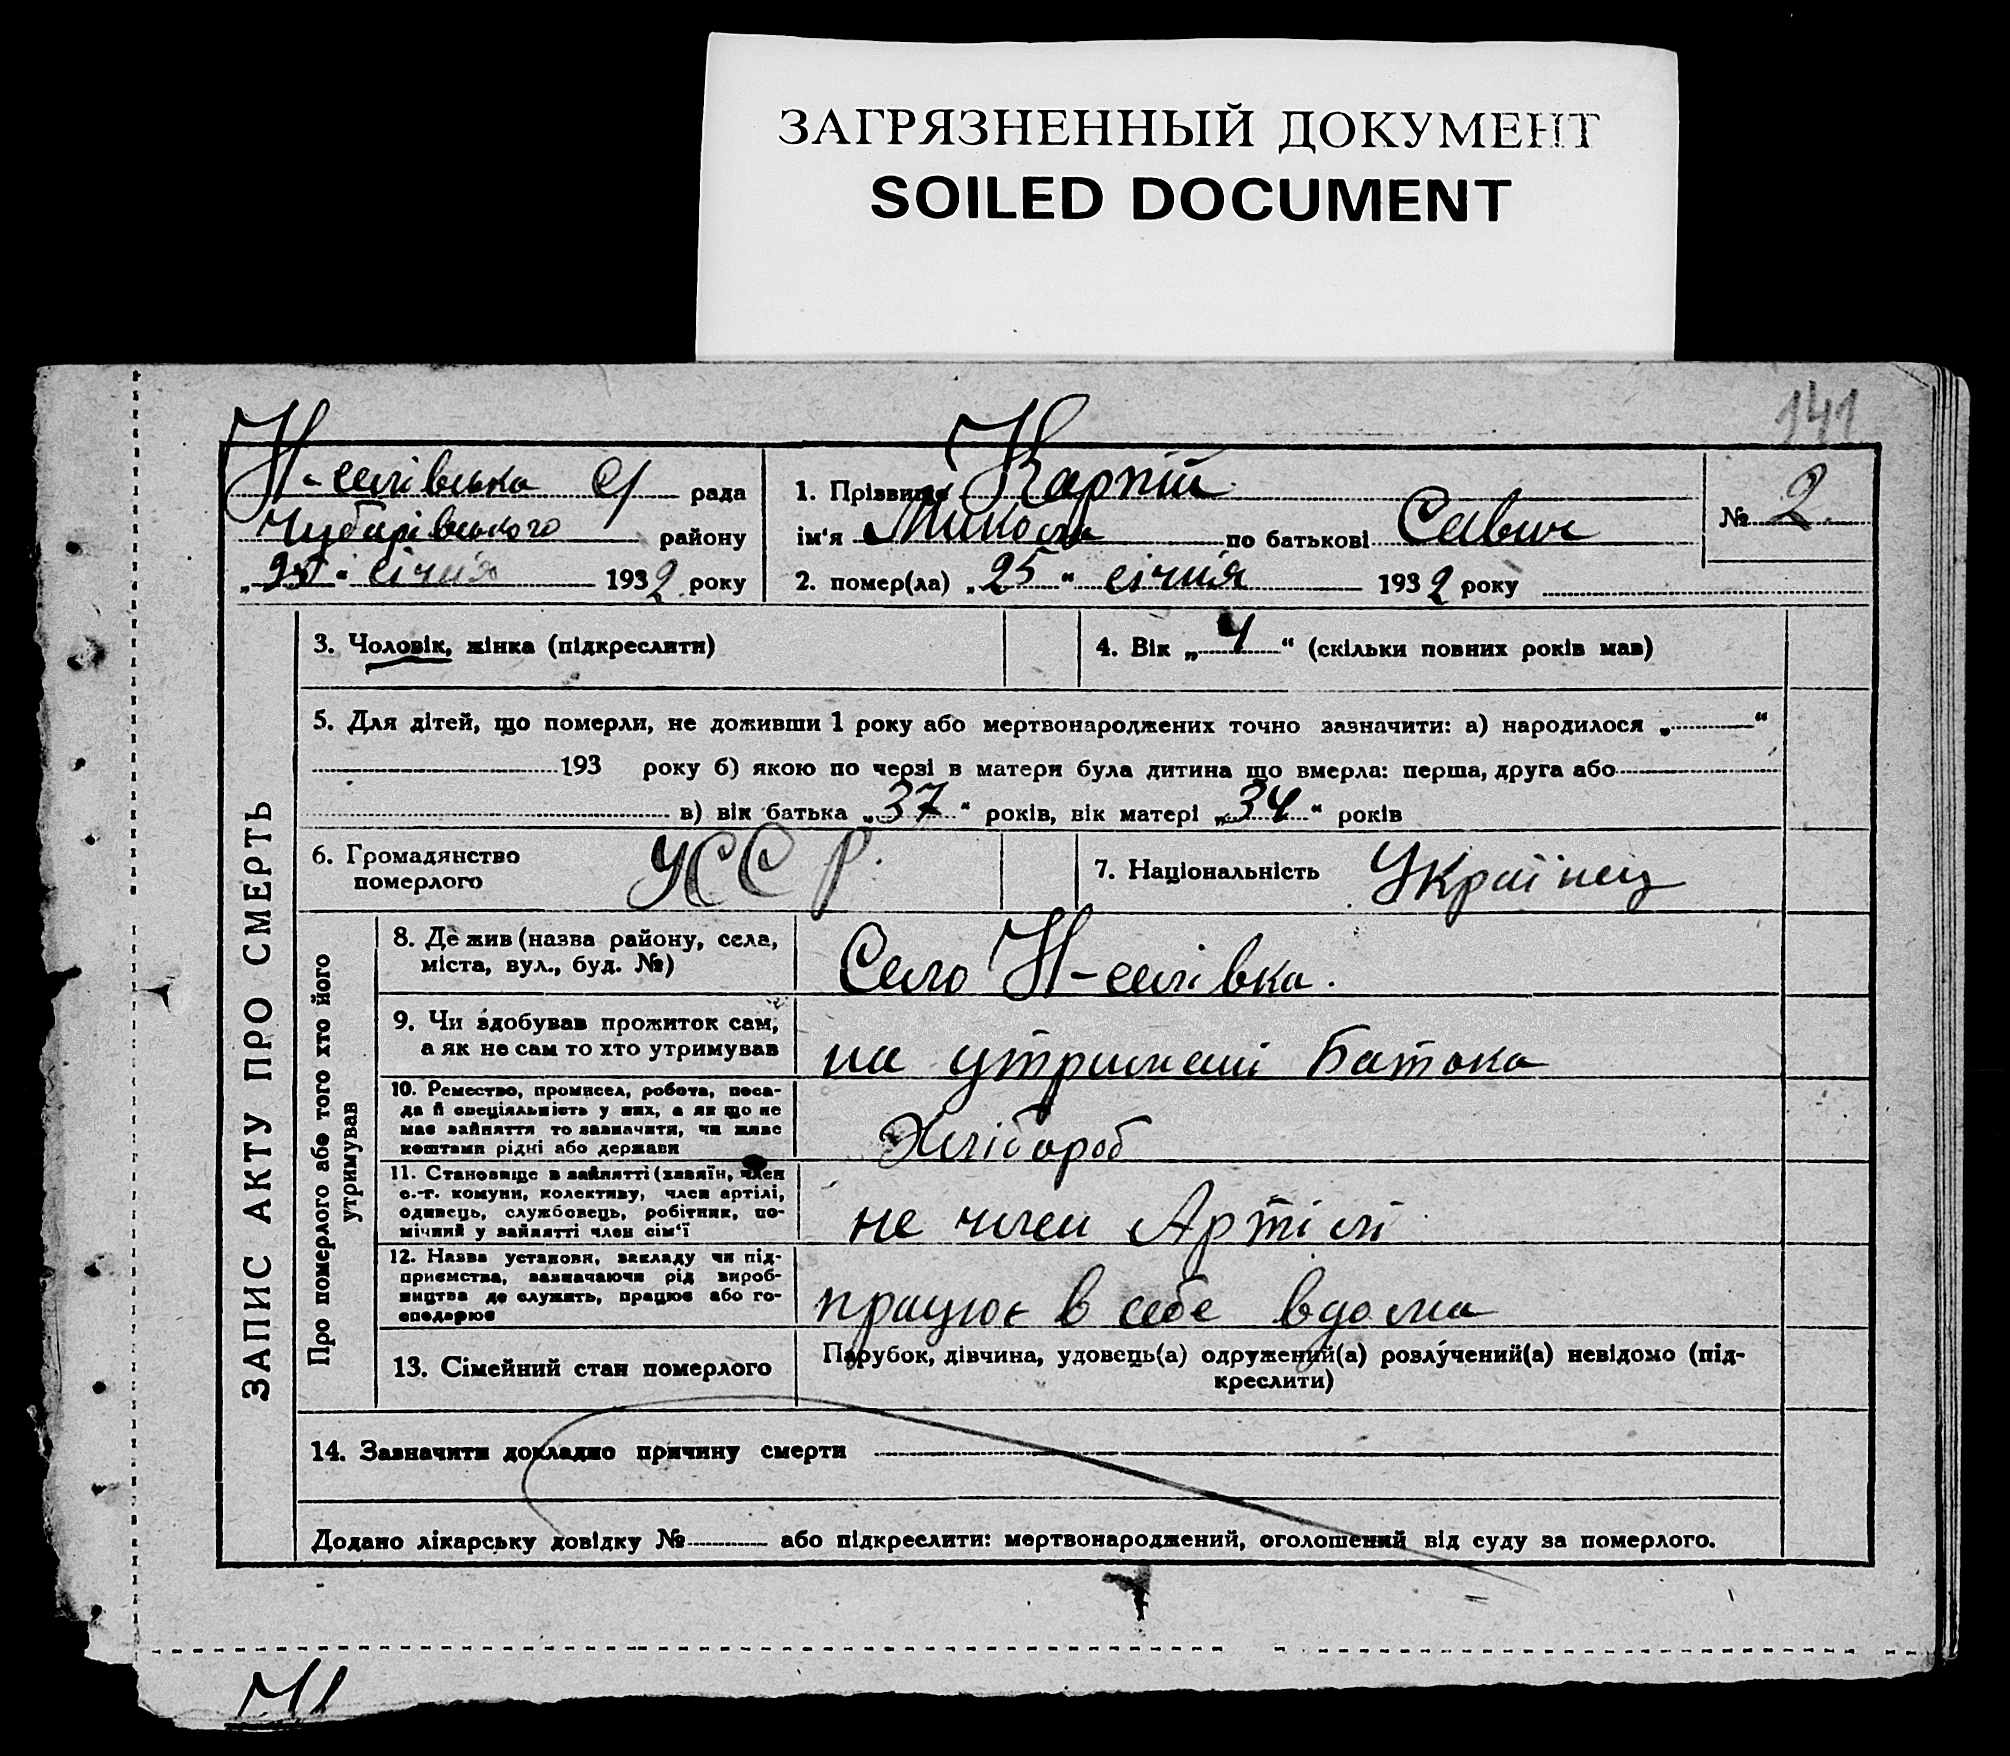 ЗАГРЯЗНЕННЫЙ ДОКУМЕНТ
SOILED DOCUMENT
141
Н-селівська с/ рада
Чубарівського району
„25“ січня 1932 року
1. Прізвище Карпій
ім'я Микола по батькові Савич
2. помер(ла) „25“ січня 1932 року
№ 2
ЗАПИС АКТУ ПРО СМЕРТЬ
3. Чоловік, жінка (підкреслити)
4. Вік „4“ (скільки повних років мав)
5. Для дітей, що померли, не доживши 1 року або мертвонароджених точно зазначити: а) народилося „ “
193 року б) якою по черзі в матери була дитина що вмерла: перша, друга або
в) вік батька „37“ років, вік матері „34“ років
6. Громадянство
померлого
УССР.
7. Національність Українец
Про померлого або того хто його
утримував
8. Де жив (назва району, села,
міста, вул., буд. №)
Село Н-селівка.
9. Чи здобував прожиток сам,
а як не сам то хто утримував
на утримані Батока
10. Ремество, промисел, робота, поса-
да й спеціяльність у них, а як що не
має зайняття то зазначити, чи живе
коштами рідні або держави
Хлібороб
11. Становище в зайнятті (хазяїн, член
с.-г. комуни, колективу, член артілі,
одинець, службовець, робітник, по-
мічний у зайнятті член сім'ї
не член Артілі
12. Назва установи, закладу чи під-
приємства, зазначаючи рід вироб-
ництва де служить, працює або го-
сподарює
працює в себе вдома
13. Сімейний стан померлого
Парубок, дівчина, удовець(а) одружений(а) розлучений(а) невідомо (під-
креслити)
14. Зазначити докладно причину смерти
Додано лікарську довідку № або підкреслити: мертвонароджений, оголошений від суду за померлого.